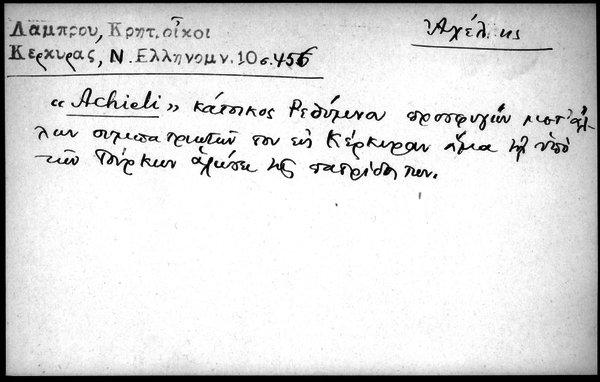 Λαμπρου, Κρητ. οἶκοι
Κερκυρας, Ν. Ελληνομν. 10 σ. 456
Ἀχέλης
« Achieli » κάτοικος Ρεθύμνου προσφυγὼν μετ' ἄλ-
λων συμπατριωτῶν του εἰς Κέρκυραν ἅμα τῇ ὑπὸ
τῶν Τούρκων ἁλώσει τῆς πατρίδος των.